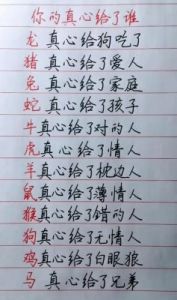 你的真心给了谁
龙 真心给狗吃了
猪 真心给了爱人
兔 真心给了家庭
蛇 真心给了孩子
牛真心给了对的人
虎真心给了情人
羊真心给了枕边人
鼠真心给了薄情人
猴真心给了错的人
狗真心给了无情人
鸡真心给了白眼狼
马 真心给了兄弟